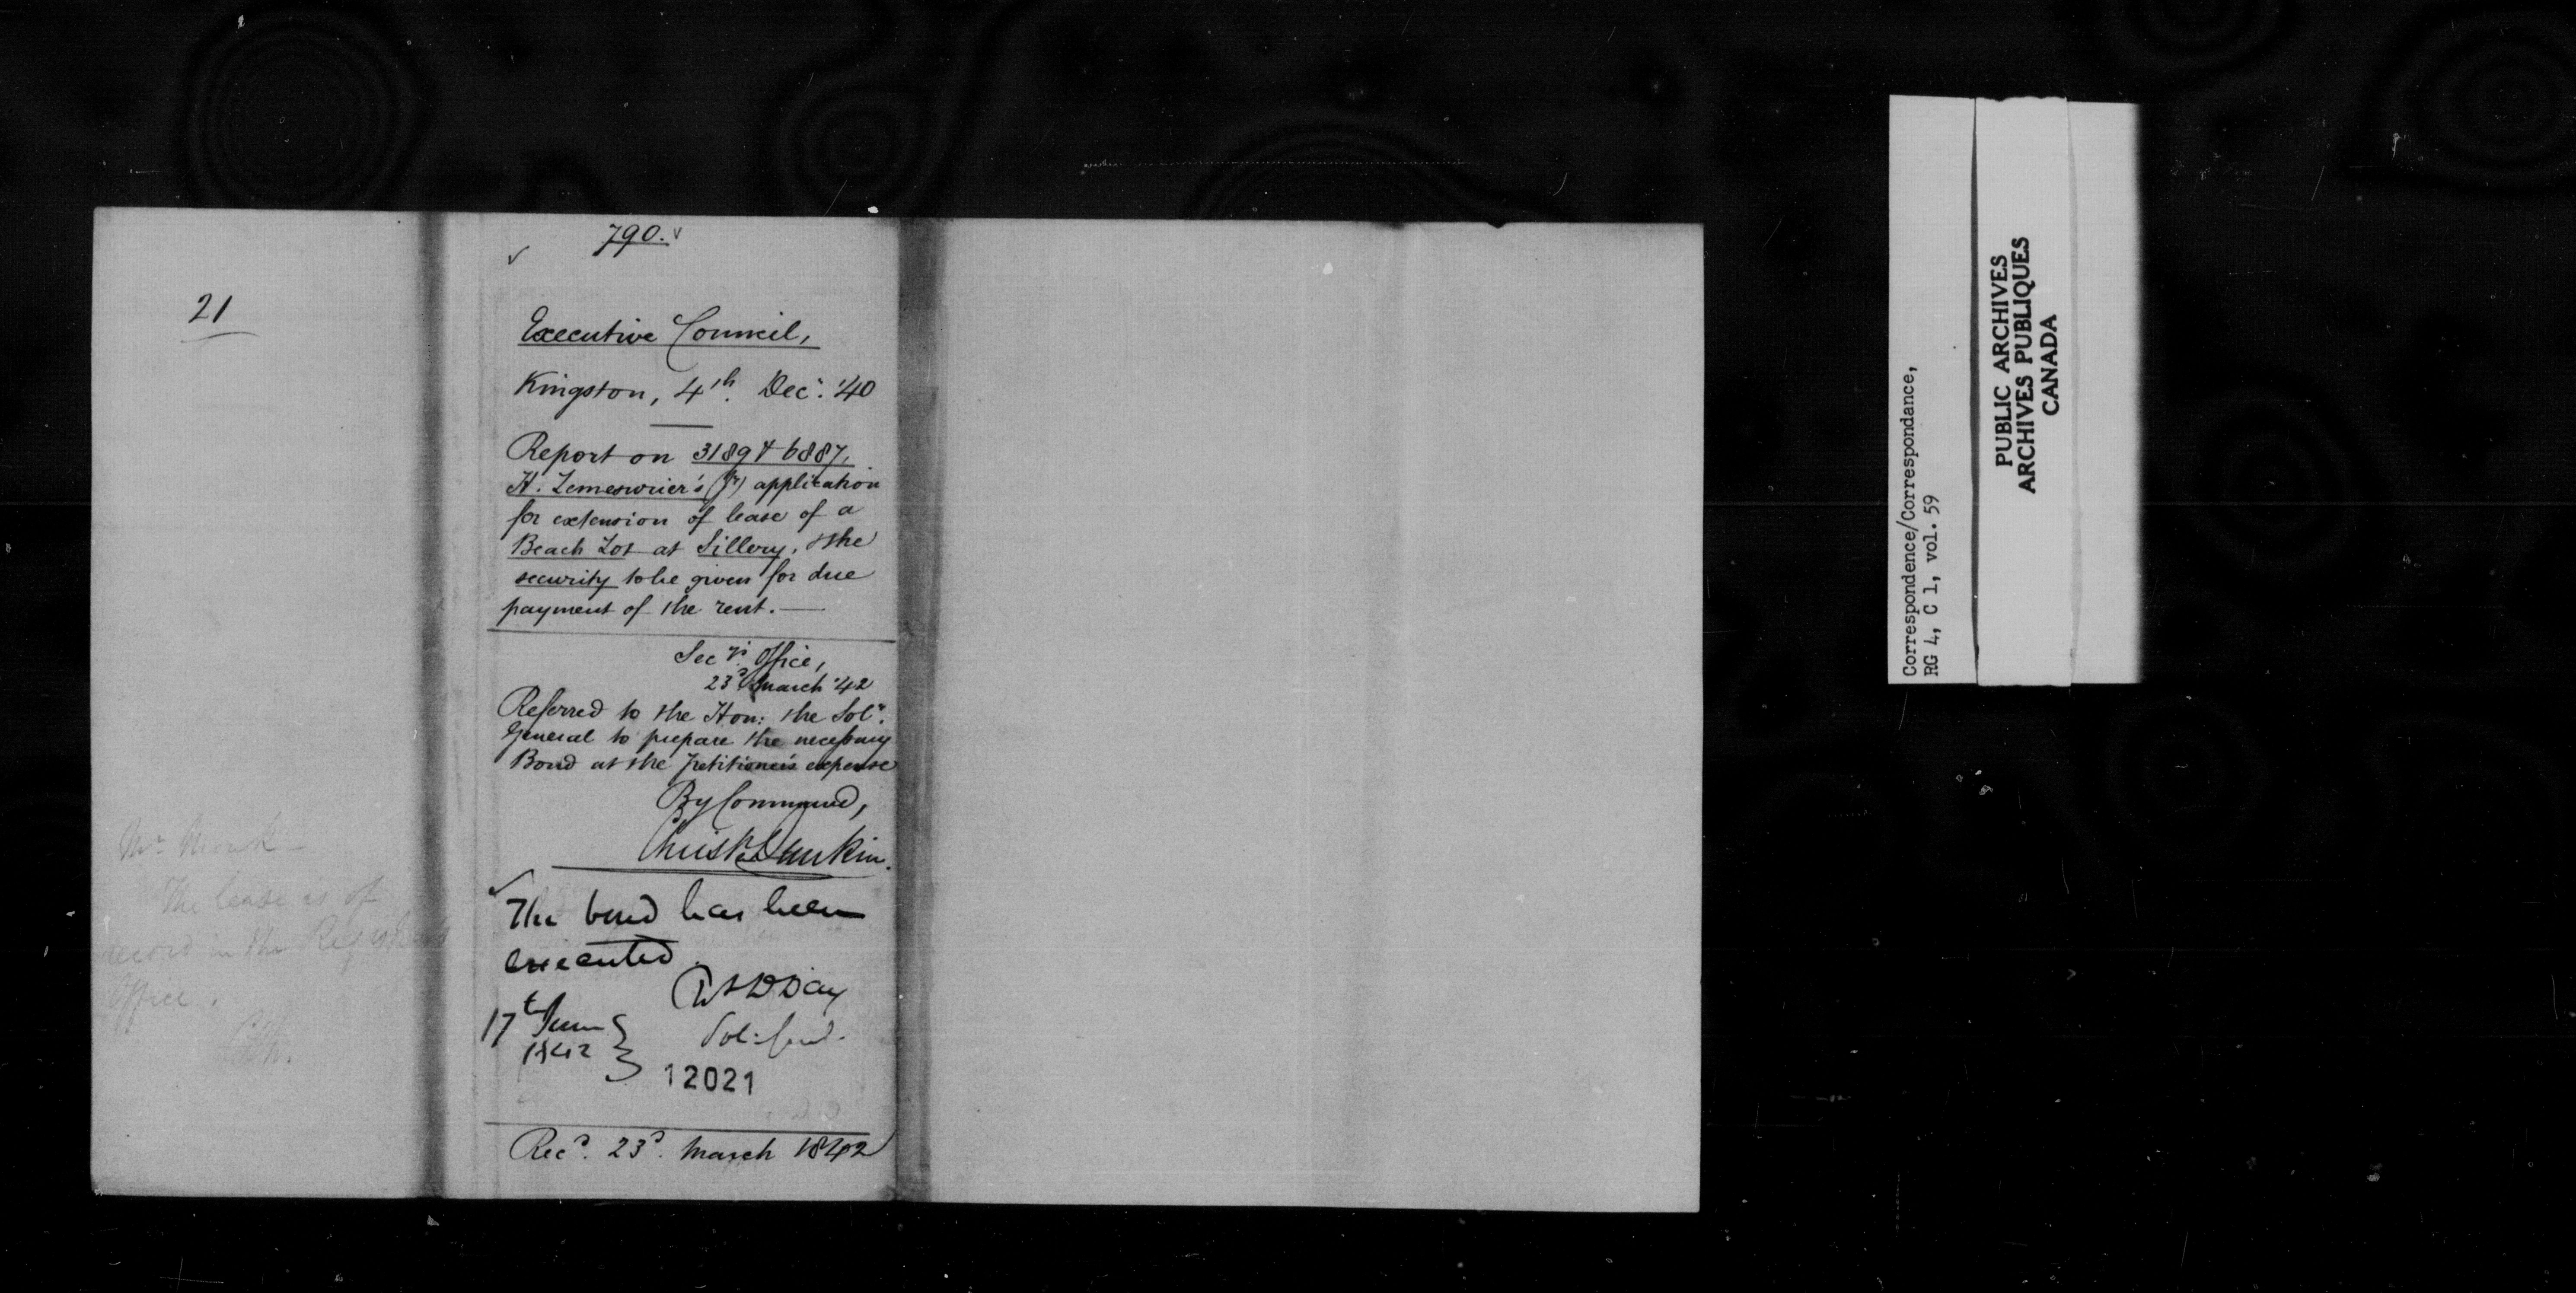 21
Mr
The lease is of
record in the Register's
Office.
790.
Executive Council,
Kingston, 4th. Decr. '40
Report on 3189 & 6887,
H. Lemesurier's (Jr) application
for extension of lease of a
Beach Lot at Sillery, & the
security to be given for due
payment of the rent.—
Secy's. Office,
23d March '42
Referred to the Hon: the Solr.
General to prepare the necessary
Bond at the petitioner's expense
By Command,
Christr Dunkin.
The bond has been
executed.
Day
Sol: Genl.
17th June
1842
12021
Recd. 23d. March 1842
Correspondence/Correspondance,
RG 4, C 1, vol. 59
PUBLIC ARCHIVES
ARCHIVES PUBLIQUES
CANADA